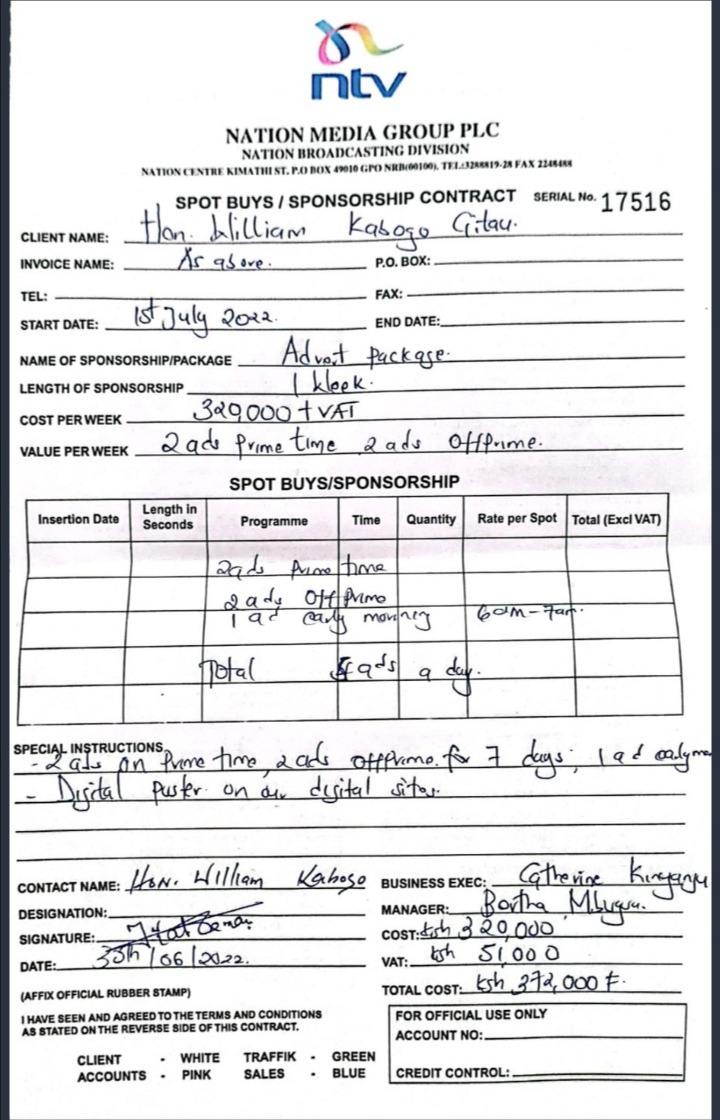 ntv
NATION MEDIA GROUP PLC
NATION BROADCASTING DIVISION
NATION CENTRE KIMATHI ST. P.O BOX 49010 GPO NRB(00100), TEL:3288819-28 FAX 2248488
SPOT BUYS / SPONSORSHIP CONTRACT SERIAL No. 17516
CLIENT NAME: Hon. William Kabogo Gitau.
INVOICE NAME: As above. P.O. BOX:
TEL: FAX:
START DATE: 1st July 2022. END DATE:
NAME OF SPONSORSHIP/PACKAGE Package.
LENGTH OF SPONSORSHIP 1 Week.
COST PER WEEK 329000 + VAT
VALUE PER WEEK 2 ads Prime time 2 ads Offprime.
SPOT BUYS/SPONSORSHIP
Insertion Date Length in Seconds Programme Time Quantity Rate per Spot Total (Excl VAT)
2 ads Prime time
2 ads Off Prime
1 ad early morning 6am - 7am.
Total ads a day.
SPECIAL INSTRUCTIONS
- 2 ads on Prime time, 2 ads offprime. for 7 days; 1 ad early
- Digital poster on our digital sites.
CONTACT NAME: Hon. William Kabogo BUSINESS EXEC: Catherine
DESIGNATION: MANAGER:
SIGNATURE: COST: Ksh 320,000
DATE: /06/2022. VAT: Ksh 51,000
TOTAL COST: Ksh 372,000
(AFFIX OFFICIAL RUBBER STAMP)
I HAVE SEEN AND AGREED TO THE TERMS AND CONDITIONS
AS STATED ON THE REVERSE SIDE OF THIS CONTRACT.
FOR OFFICIAL USE ONLY
ACCOUNT NO:
CREDIT CONTROL:
CLIENT - WHITE TRAFFIK - GREEN
ACCOUNTS - PINK SALES - BLUE